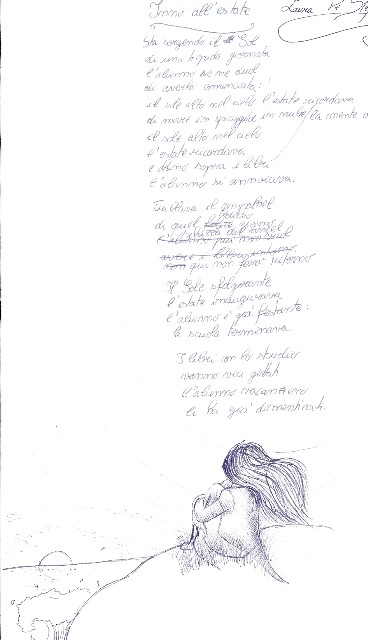 Inno all'estate
Laura
Sta sorgendo il Sol
di una tiepida giornata
l'alunno se ne duol
di averla annunciata:
il sole alto nel cielo l'estate ricordava
di mare in spiaggia in nube la mente
il sole alto nel cielo
l'estate ricordava
e chino sopra i libri
l'alunno si annoiava.
Tuttavia il
di quel
non qui non farà ritorno
Il Sole sfolgorante
l'estate inaugurava
l'alunno è già festante:
la scuola terminava.
I libri con lo studio
vanno via gettati
l'alunno vacanziero
li ha già dimenticati.